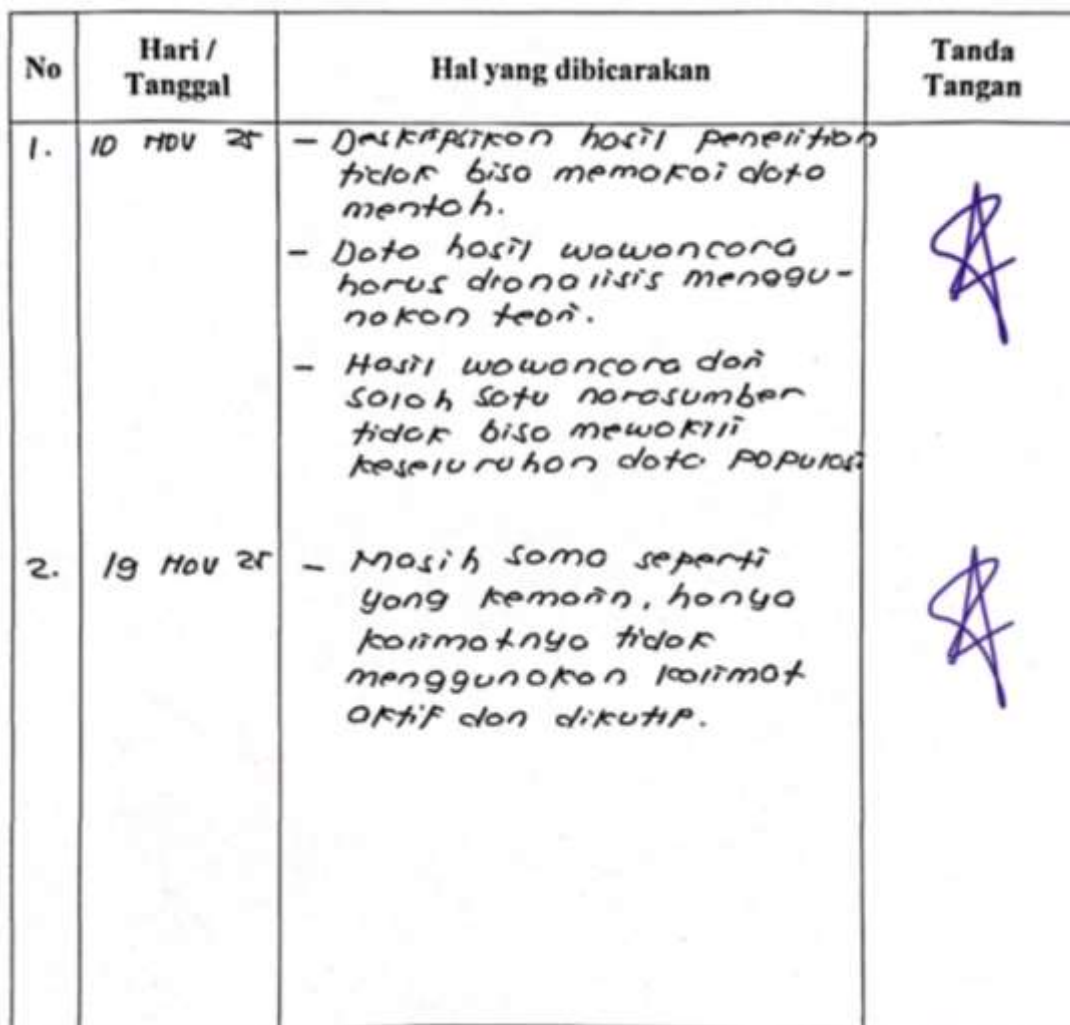 No
Hari /
Tanggal
Hal yang dibicarakan
Tanda
Tangan
1.
10 Nov 25
- Deskripsikan hasil penelitian
tidak bisa memakai data
mentah.
- Data hasil wawancara
harus dianalisis menggu-
nakan teori.
- Hasil wawancara dari
salah satu narasumber
tidak bisa mewakili
keseluruhan data populasi
2.
19 Nov 25
- Masih sama seperti
yang kemarin, hanya
kalimatnya tidak
menggunakan kalimat
aktif dan dikutip.